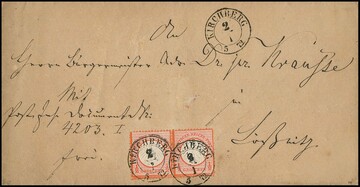 KIRCHBERG
2
1
An
Herrn Bürgermeister Adv. Dr. jur. Krauße
in
Lößnitz
Mit
Post. Document No.
4203. I
frei.
KIRCHBERG
2
1
KIRCHBERG
2
1